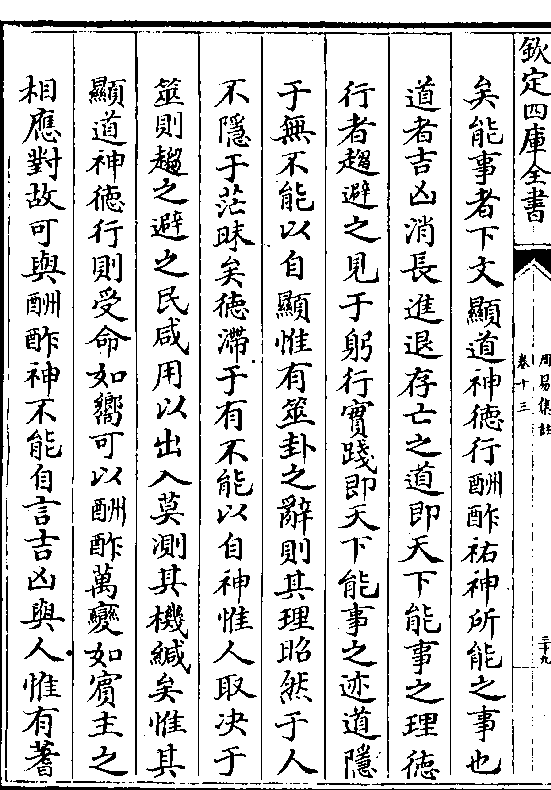 欽定四庫全書
周易集註
卷十三
三十九
矣能事者下文顯道神德行酬酢祐神所能之事也
道者吉凶消長進退存亡之道即天下能事之理德
行者趨避之見于躬行實踐即天下能事之迹道隱
于無不能以自顯惟有筮卦之辭則其理昭然于人
不隱于茫昧矣德滯于有不能以自神惟人取決于
筮則趨之避之民咸用以出入莫測其機緘矣惟其
顯道神德行則受命如嚮可以酬酢萬變如賓主之
相應對故可與酬酢神不能自言吉凶與人惟有蓍